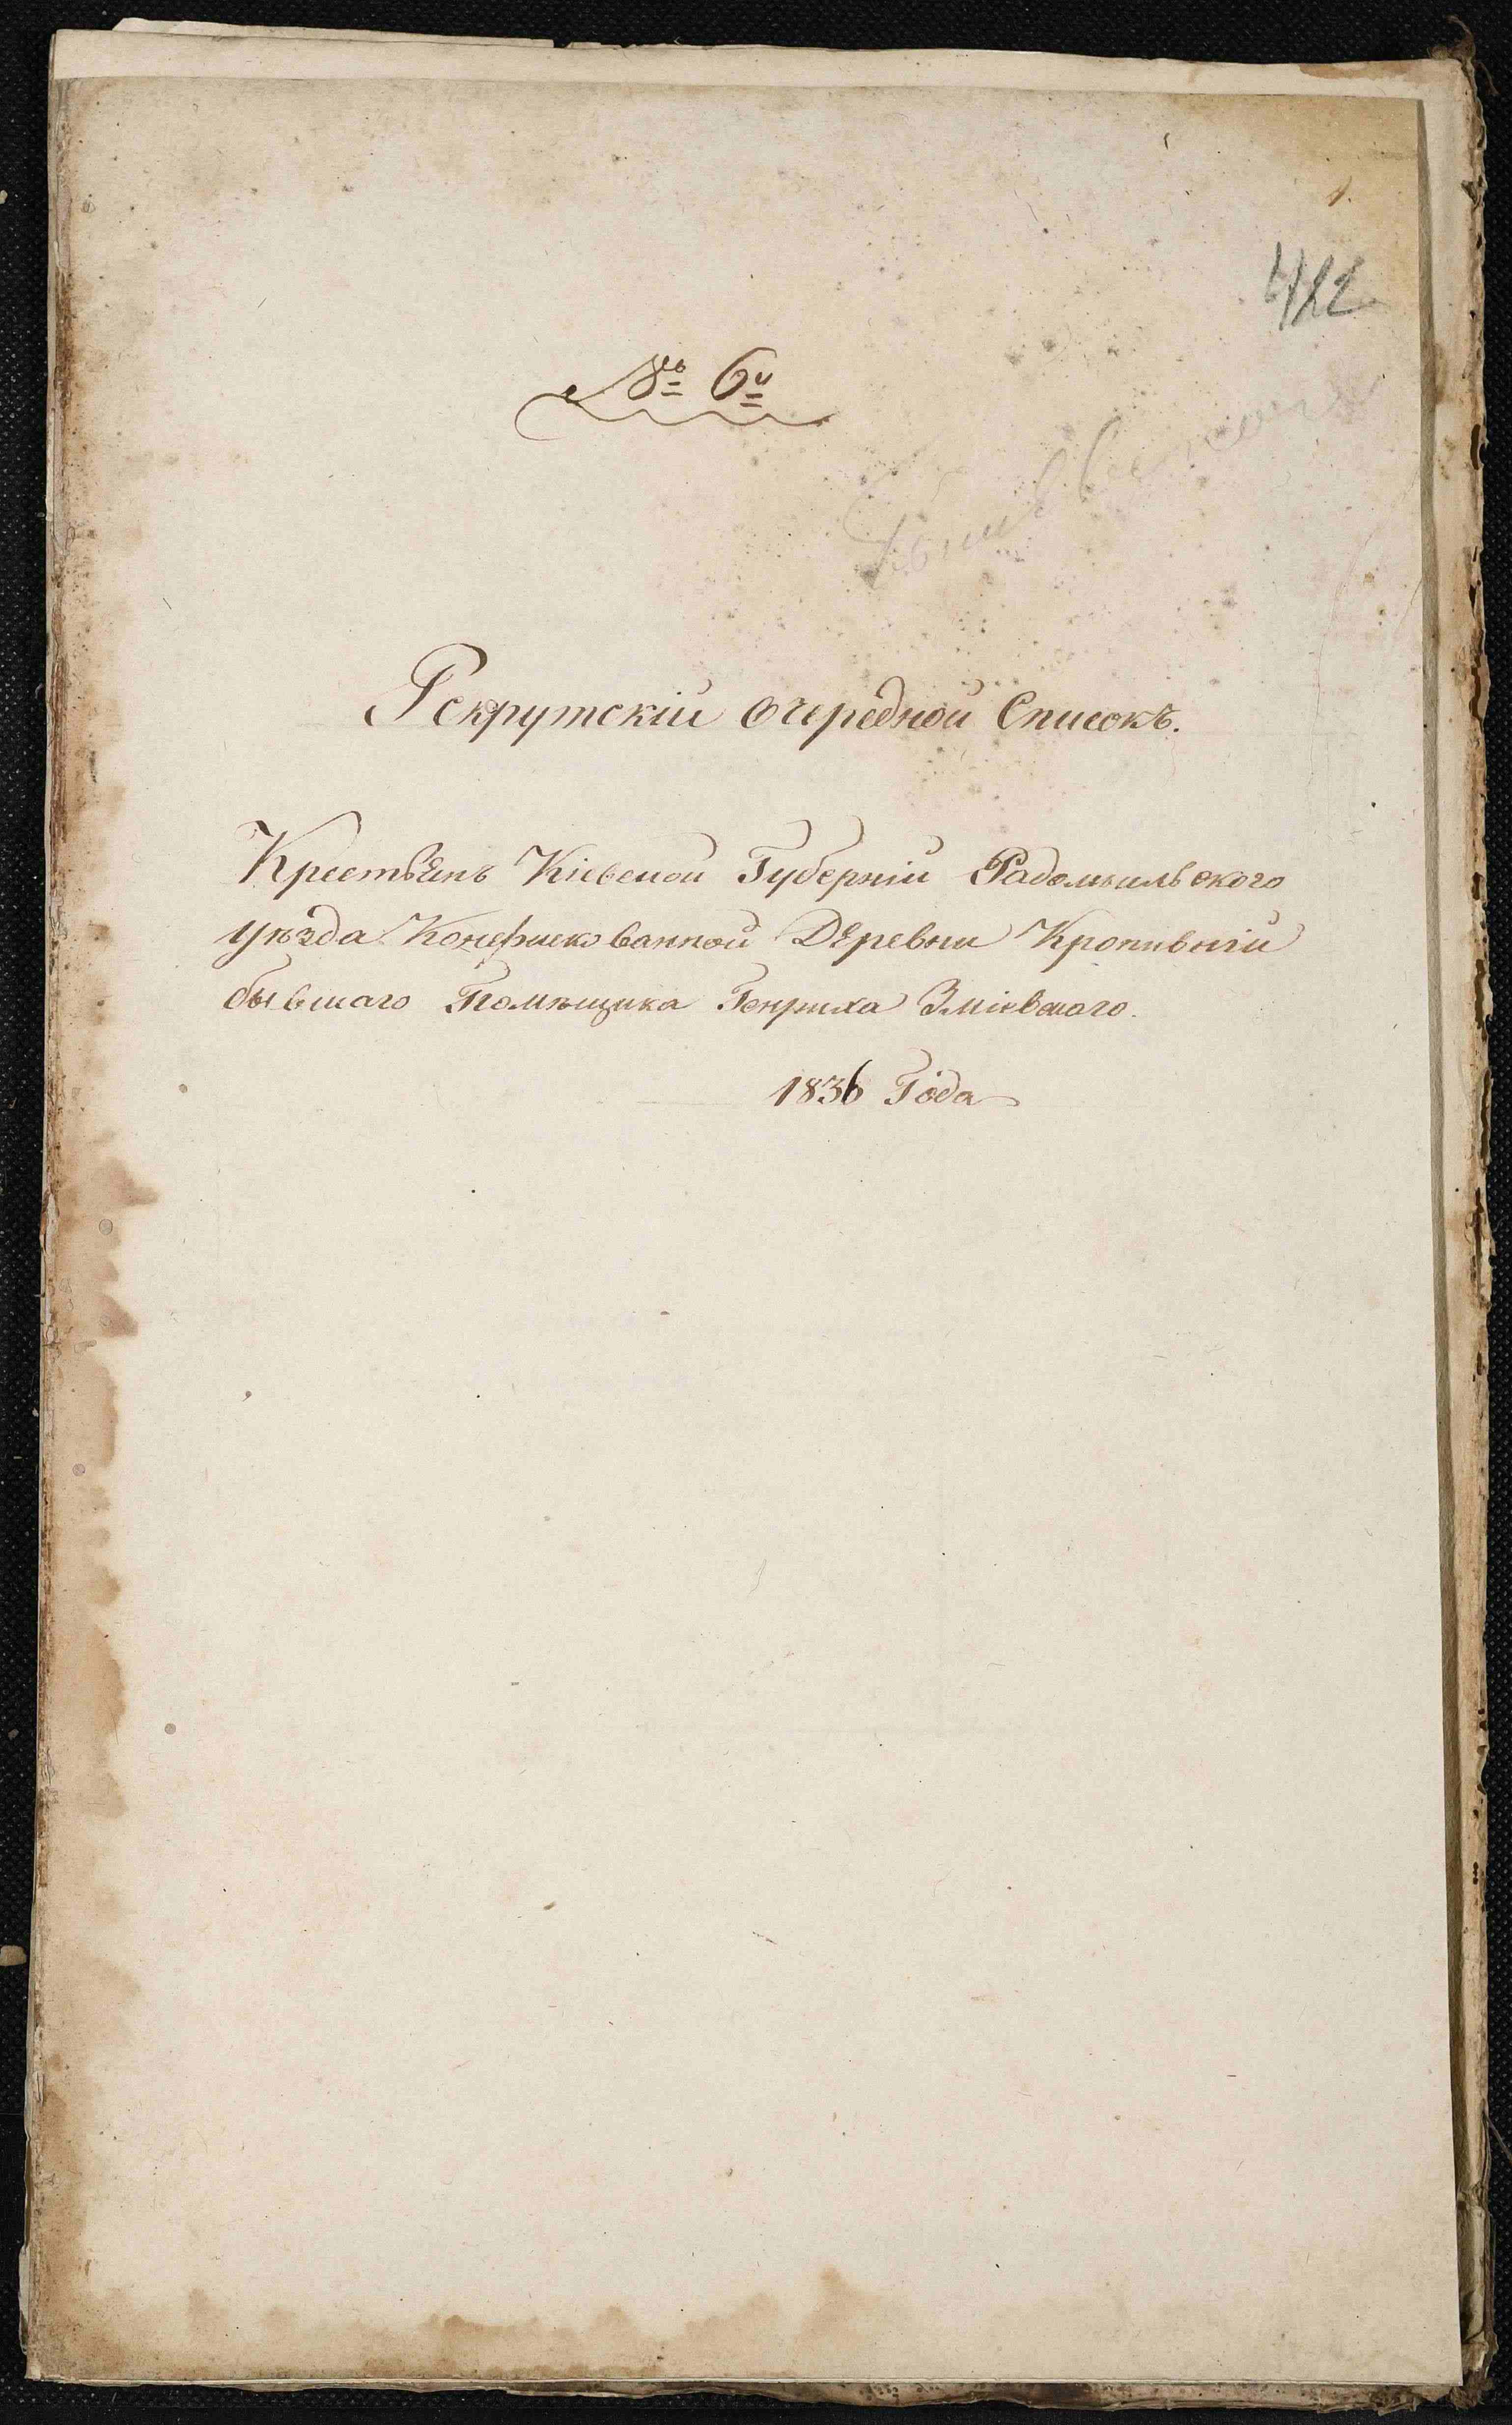 1.
412
№ 6й
Рекрутскій очередной Списокъ.
Крестьянъ Кіевской Губерніи Радомыльского
уѣзда Конфискованной Деревни Кропивни
бывшаго Помѣщика Генриха Зміевскаго.
1836 Года